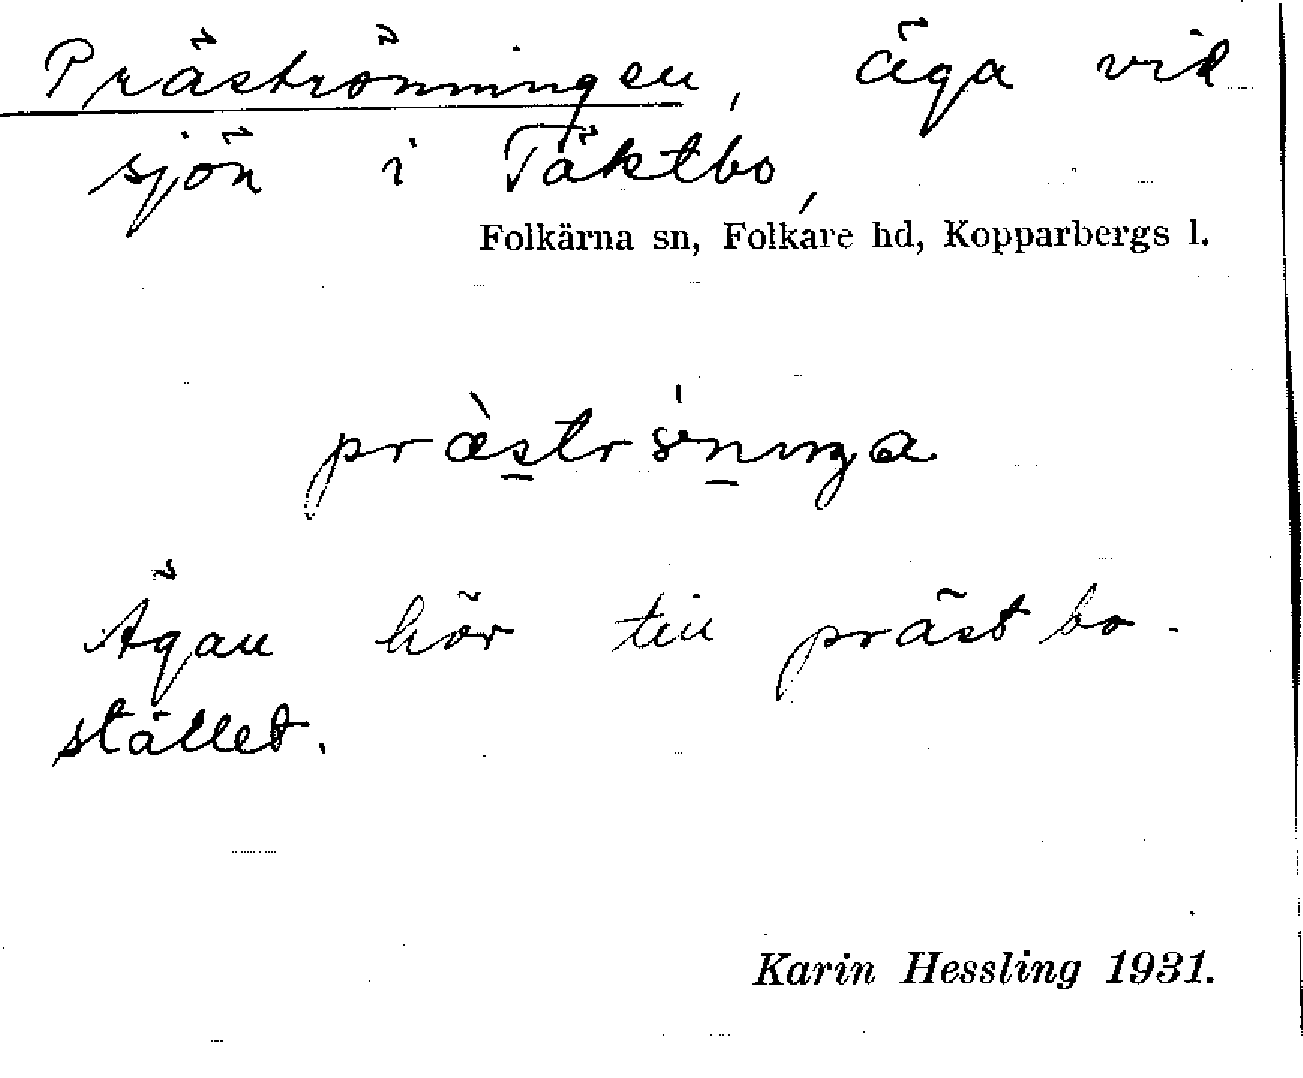 Präströnningen, äga vid
sjön i Täktbo,
Folkärna sn, Folkare hd, Kopparbergs l.
præ̀strö́nninga
Ägan hör till prästbo-
stället.
Karin Hessling 1931.